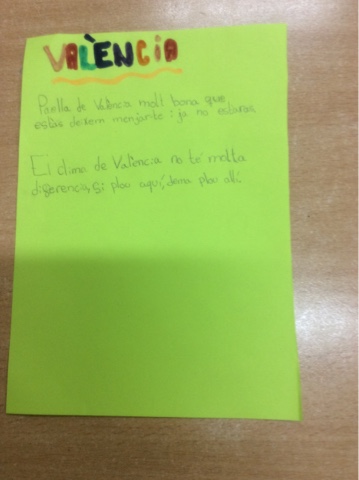 VALÈNCIA
Paella de València molt bona que
estas deixem menjante i ja no estaras
El clima de València no té molta
diferencia, si plou aquí, dema plou allí.